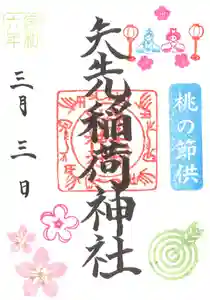 令和
六年
三月三日
矢先稲荷神社
桃の節供